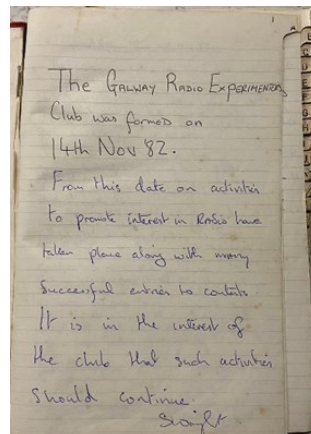 1
The Galway Radio Experimenters
Club was formed on
14th Nov 82.
From this date on activities
to promote interest in Radio have
taken place along with many
successful entries to contests
It is in the interest of
the club that such activities
should continue.
A
B
C
D
E
F
G
H
I
J